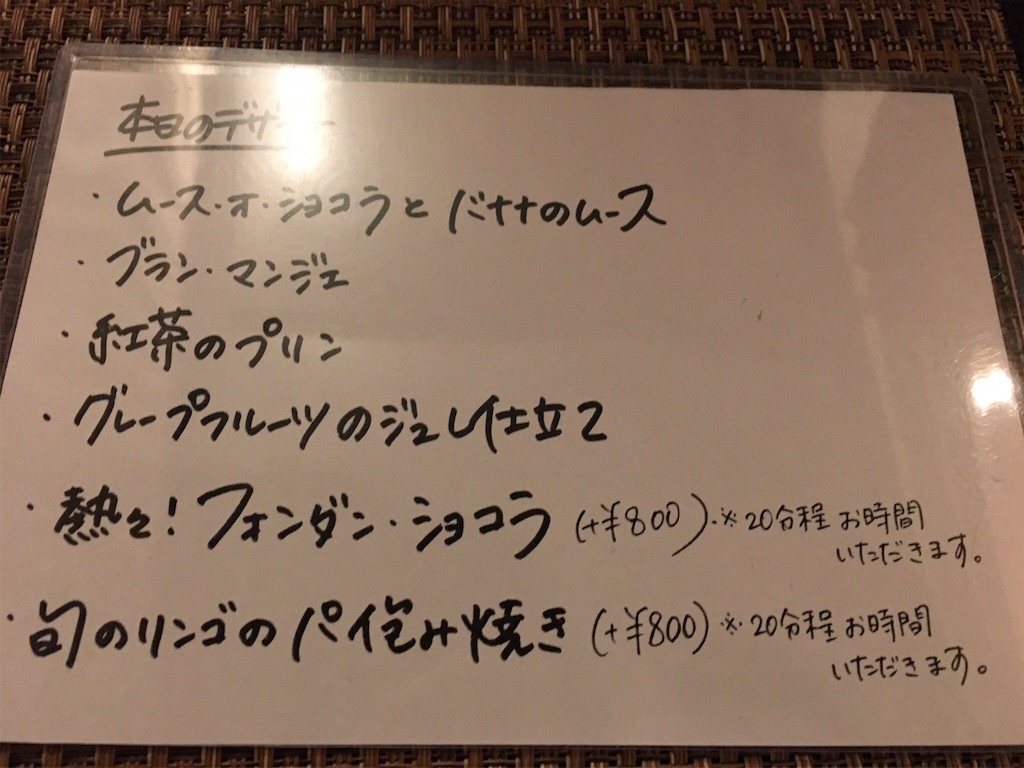 本日のデザ
・ムース・オ・ショコラと バナナのムース
・ブラン・マンジェ
・紅茶のプリン
・グレープフルーツのジュレ仕立て
・熱々！フォンダン・ショコラ (+¥800)・※20分程 お時間
いただきます。
・旬のリンゴのパイ包み焼き (+¥800) ※20分程 お時間
いただきます。